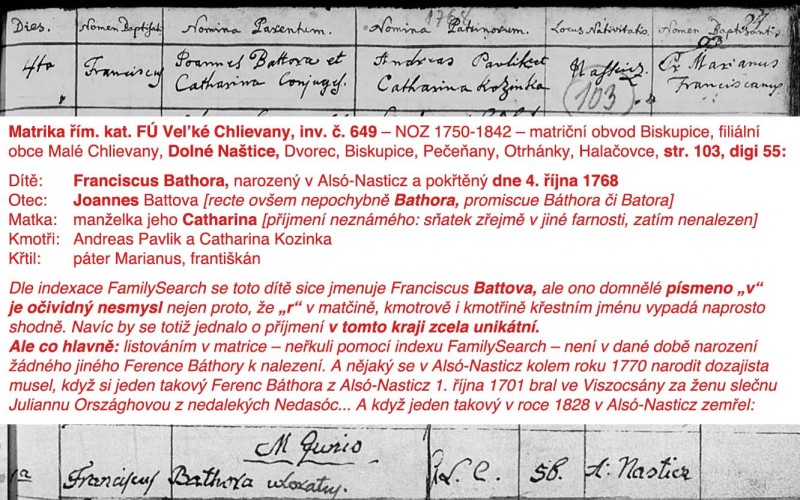 Dies. Nomen Baptisati. Nomina Parentum. Nomina Patrinorum. Locus Nativitatis. Nomen Baptisantis
4ta Franciscus Joannes Battora et Andreas Pavlik et Nasticz. Pr Marianus
Catharina Conjuges. Catharina Kozinka 103 Franciscanus
Matrika řím. kat. FÚ Veľké Chlievany, inv. č. 649 – NOZ 1750-1842 – matriční obvod Biskupice, filiální
obce Malé Chlievany, Dolné Naštice, Dvorec, Biskupice, Pečeňany, Otrhánky, Halačovce, str. 103, digi 55:
Dítě: Franciscus Bathora, narozený v Alsó-Nasticz a pokřtěný dne 4. října 1768
Otec: Joannes Battova [recte ovšem nepochybně Bathora, promiscue Báthora či Batora]
Matka: manželka jeho Catharina [příjmení neznámého: sňatek zřejmě v jiné farnosti, zatím nenalezen]
Kmotři: Andreas Pavlik a Catharina Kozinka
Křtil: páter Marianus, františkán
Dle indexace FamilySearch se toto dítě sice jmenuje Franciscus Battova, ale ono domnělé písmeno „v“
je očividný nesmysl nejen proto, že „r“ v matčině, kmotrově i kmotřině křestním jménu vypadá naprosto
shodně. Navíc by se totiž jednalo o příjmení v tomto kraji zcela unikátní.
Ale co hlavně: listováním v matrice – neřkuli pomocí indexu FamilySearch – není v dané době narození
žádného jiného Ference Báthory k nalezení. A nějaký se v Alsó-Nasticz kolem roku 1770 narodit dozajista
musel, když si jeden takový Ferenc Báthora z Alsó-Nasticz 1. října 1701 bral ve Viszocsány za ženu slečnu
Juliannu Országhovou z nedalekých Nedasóc... A když jeden takový v roce 1828 v Alsó-Nasticz zemřel:
M Junio
Franciscus Bathora uxoratus. R. C. 56. A: Nasticz